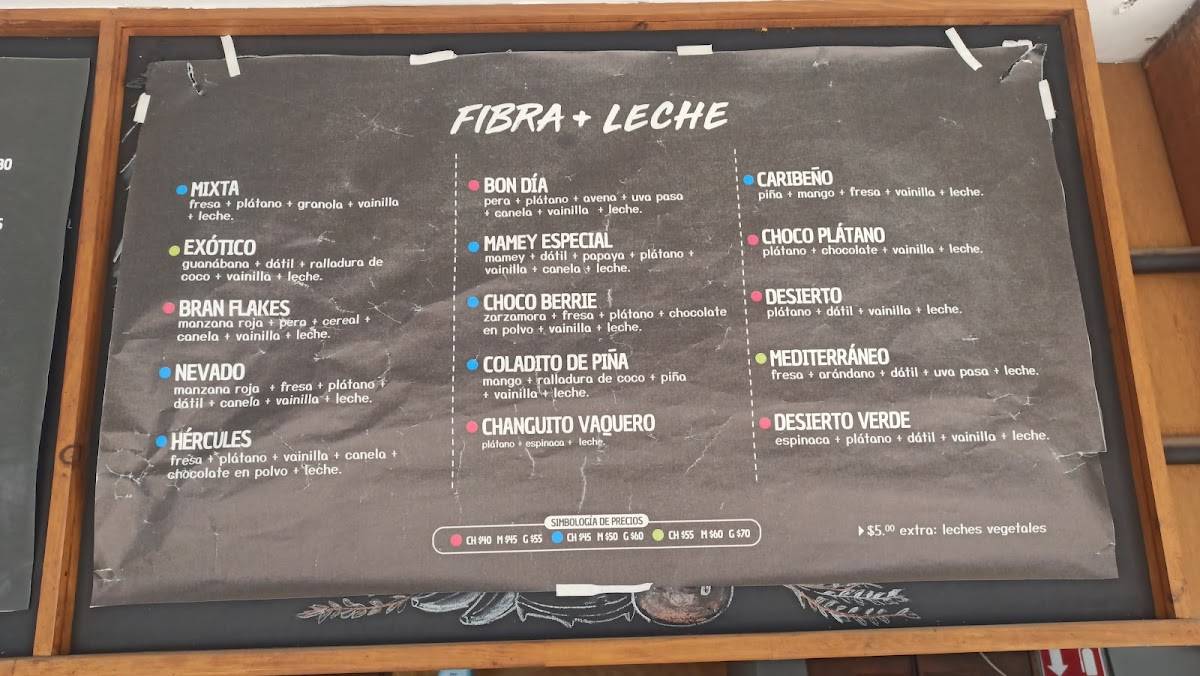 FIBRA + LECHE
MIXTA
fresa + plátano + granola + vainilla
+ leche.
EXÓTICO
guanábana + dátil + ralladura de
coco + vainilla + leche.
BRAN FLAKES
manzana roja + pera + cereal +
canela + vainilla + leche.
NEVADO
manzana roja + fresa + plátano +
dátil + canela + vainilla + leche.
HÉRCULES
fresa + plátano + vainilla + canela +
chocolate en polvo + leche.
BON DÍA
pera + plátano + avena + uva pasa
+ canela + vainilla + leche.
MAMEY ESPECIAL
mamey + dátil + papaya + plátano +
vainilla + canela + leche.
CHOCO BERRIE
zarzamora + fresa + plátano + chocolate
en polvo + vainilla + leche.
COLADITO DE PIÑA
mango + ralladura de coco + piña
+ vainilla + leche.
CHANGUITO VAQUERO
plátano + espinaca + leche.
CARIBEÑO
piña + mango + fresa + vainilla + leche.
CHOCO PLÁTANO
plátano + chocolate + vainilla + leche.
DESIERTO
plátano + dátil + vainilla + leche.
MEDITERRÁNEO
fresa + arándano + dátil + uva pasa + leche.
DESIERTO VERDE
espinaca + plátano + dátil + vainilla + leche.
SIMBOLOGÍA DE PRECIOS
CH $40 M $45 G $55 CH $45 M $50 G $60 CH $55 M $60 G $70
$5.00 extra: leches vegetales